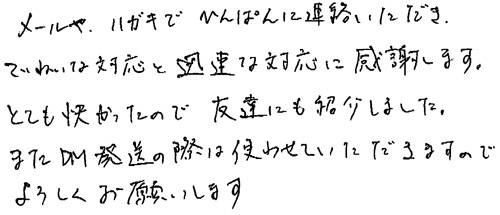 メールや、ハガキでひんぱんに連絡いただき、
ていねいな対応と迅速な対応に感謝します。
とても快かったので友達にも紹介しました。
またDM発送の際は使わせていただきますので
よろしくお願いします